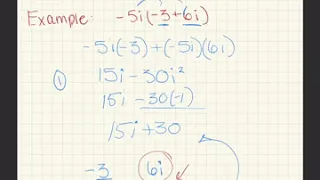 Example: -5i(-3+6i)
-5i(-3)+(-5i)(6i)
① 15i-30i²
15i-30(-1)
15i+30
-3 6i